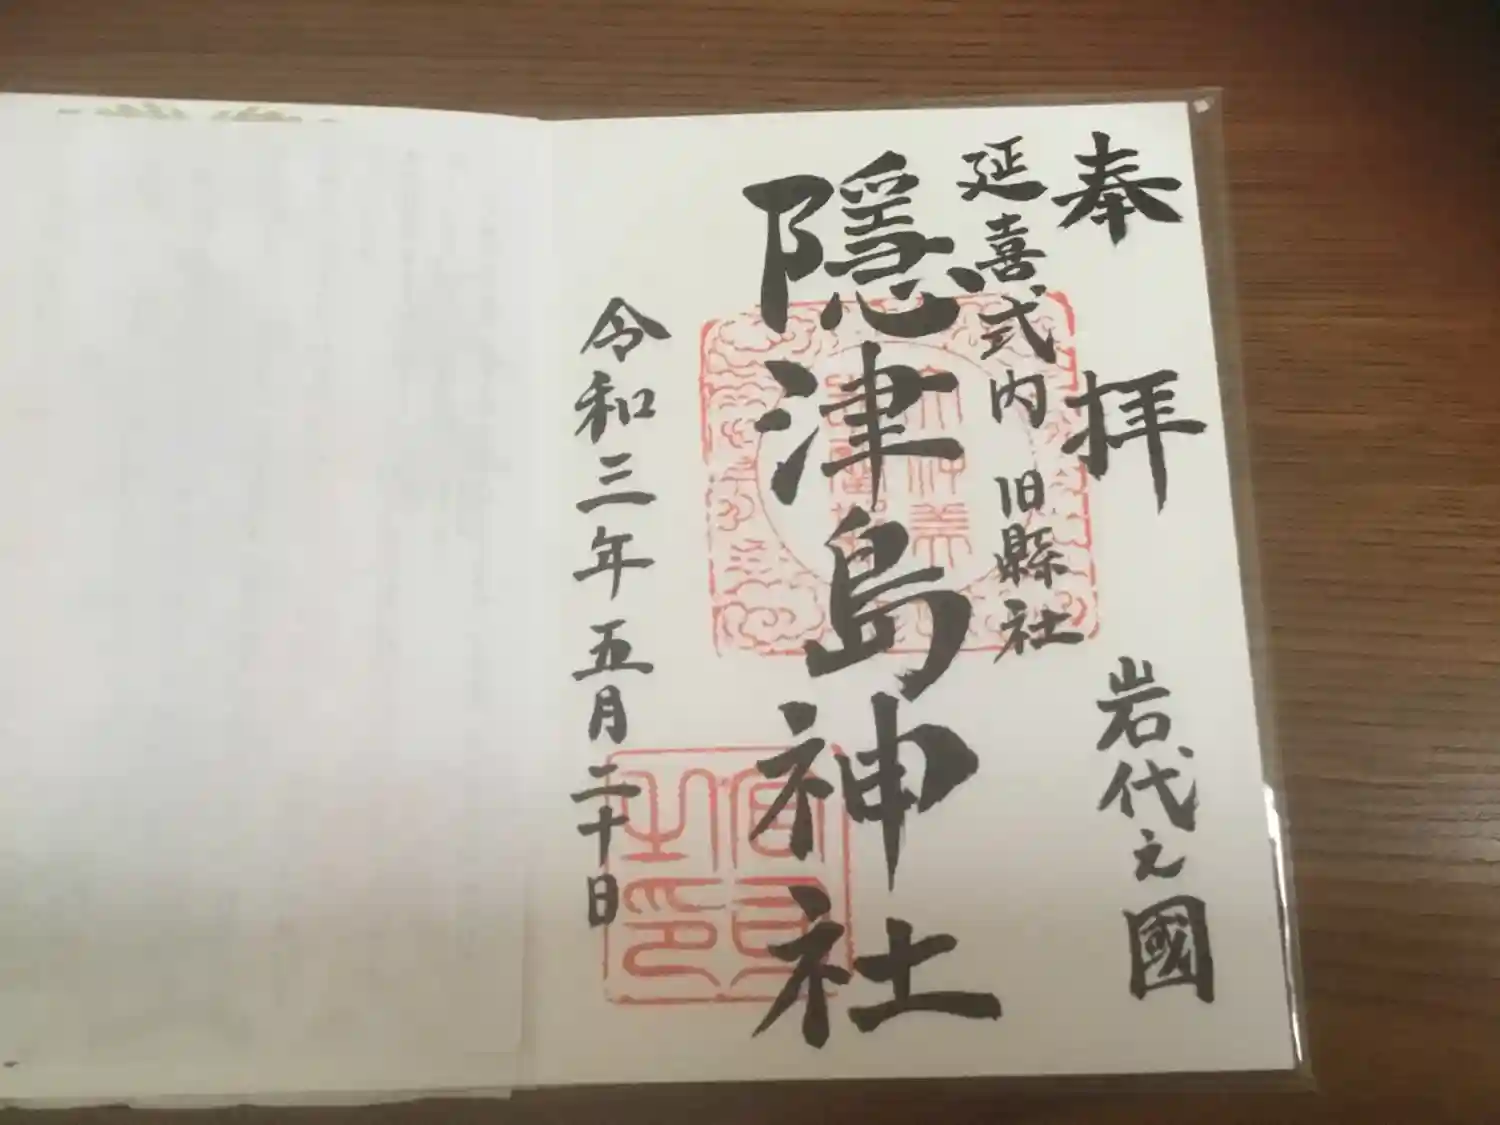 奉拝　岩代之國
延喜式内　旧縣社
隱津島神社
令和三年五月二十日